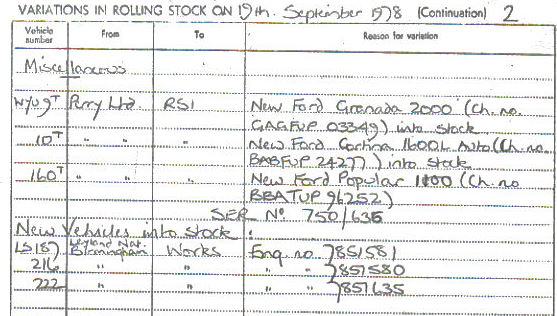 VARIATIONS IN ROLLING STOCK ON 19th. September 1978 (Continuation) 2
Vehicle number From To Reason for variation
Miscellaneous
WYU 9T Perry Ltd. RS1 New Ford Granada 2000 (Ch. no.
GAGFUP 03349) into stock
10T " " " New Ford Cortina 1600L Auto (Ch. no.
BABFUP 24277) into stock
160T " " " New Ford Popular 1100 (Ch. no
BBATUP 96252)
SER No. 750/635
New Vehicles into stock:
LS187 Leyland Nat. Birmingham Works Eng. no. 7851581
216 " " " " 7851580
222 " " " " 7851635